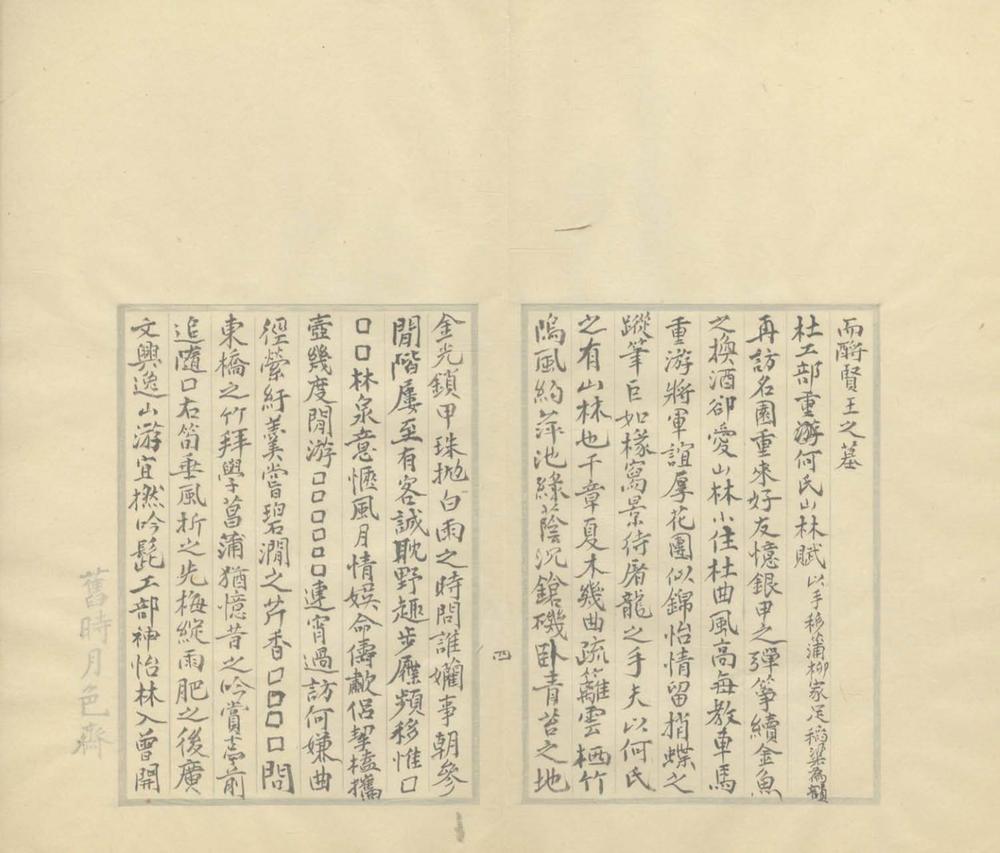 而酹賢王之墓
杜工部重游何氏山林賦以手移蒲柳家足稻粱為韻
再訪名園重來好友憶銀甲之彈箏續金魚
之換酒卻愛山林小住杜曲風高每教車馬
重游將軍誼厚花團似錦怡情留梢蝶之
蹤筆巨如椽寫景待屠龍之手夫以何氏
之有山林也千章夏木幾曲疏籬雲栖竹
塢風約萍池綠蔭沉鎗磯臥青苔之地
四
金光鎖甲珠拋白雨之時問誰嬾事朝參
閒階屢至有客誠耽野趣步屧頻移惟口
口口林泉意愜風月情娛命儔歡侶挈榼攜
壺幾度閒游口口口口口連宵過訪何嫌曲
徑縈紆羹嘗碧澗之芹香口口口口問
東橋之竹拜學菖蒲猶憶昔之吟賞志前
追隨口右筍垂風折之先梅綻雨肥之後廣
文興逸山游宜撚吟髭工部神怡林入曾開
舊時月色齋